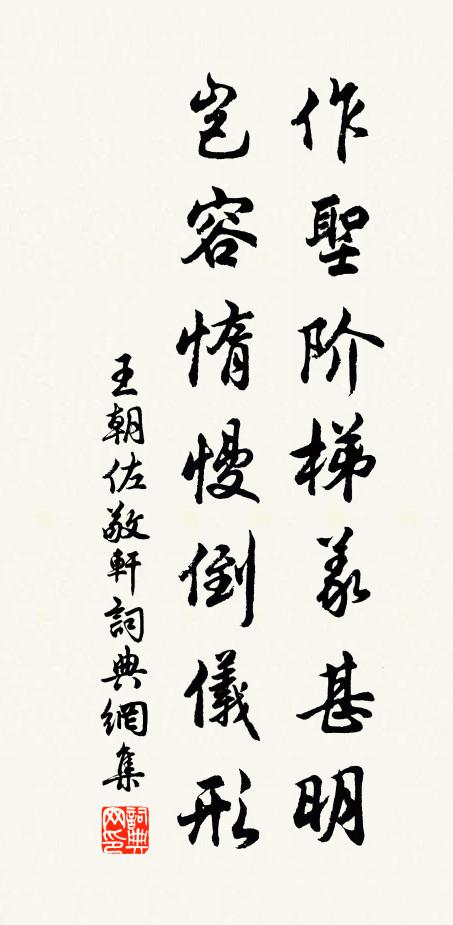 作聖阶梯义甚明
岂容惰慢倒儀形
王朝佐敬軒詞典網集
詞典网印